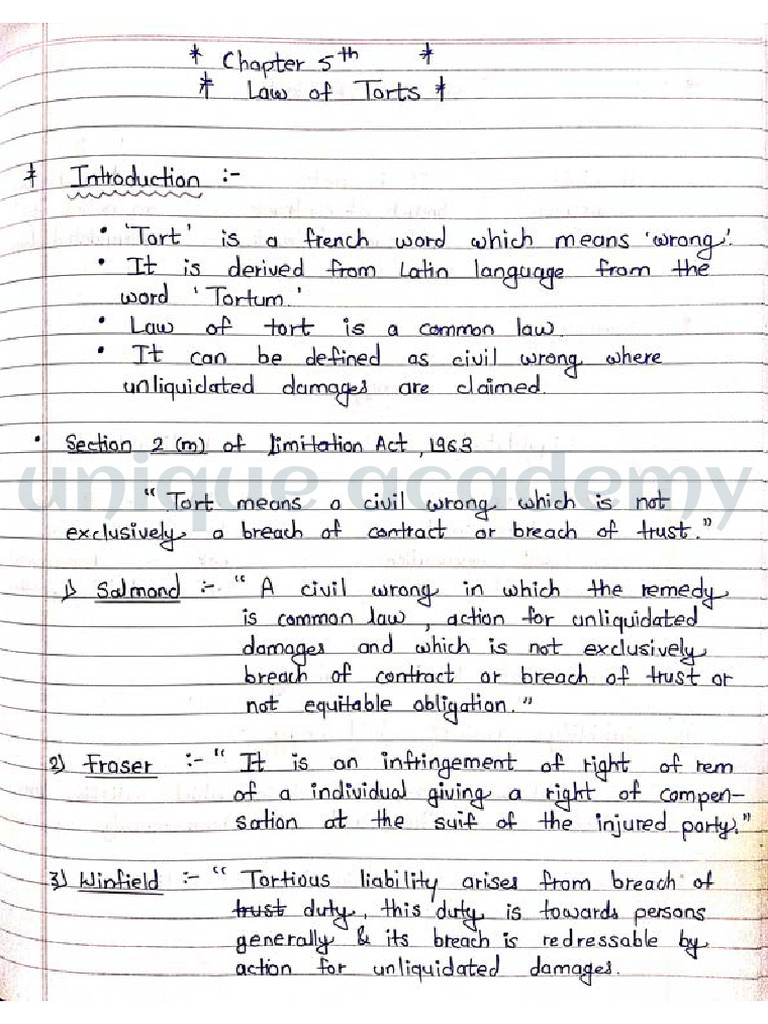 * Chapter 5th *
* Law of Torts *
* Introduction :-
• 'Tort' is a french word which means 'wrong'.
• It is derived from Latin language from the
word 'Tortum.'
• Law of tort is a common law
• It can be defined as civil wrong where
unliquidated damages are claimed.
• Section 2 (m) of Limitation Act, 1963
unique academy
"Tort means a civil wrong which is not
exclusively a breach of contract or breach of trust."
1) Salmond :- "A civil wrong in which the remedy
is common law, action for unliquidated
damages and which is not exclusively
breach of contract or breach of trust or
not equitable obligation."
2) Fraser :- "It is an infringement of right of rem
of a individual giving a right of compen-
sation at the suif of the injured party."
3) Winfield :- "Tortious liability arises from breach of
trust duty, this duty is towards persons
generally & its breach is redressable by
action for unliquidated damages.